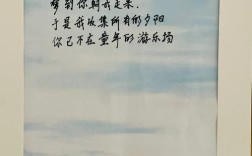 梦到你朝我走来.
于是我收集所有的夕阳
你已不在童年的游乐场